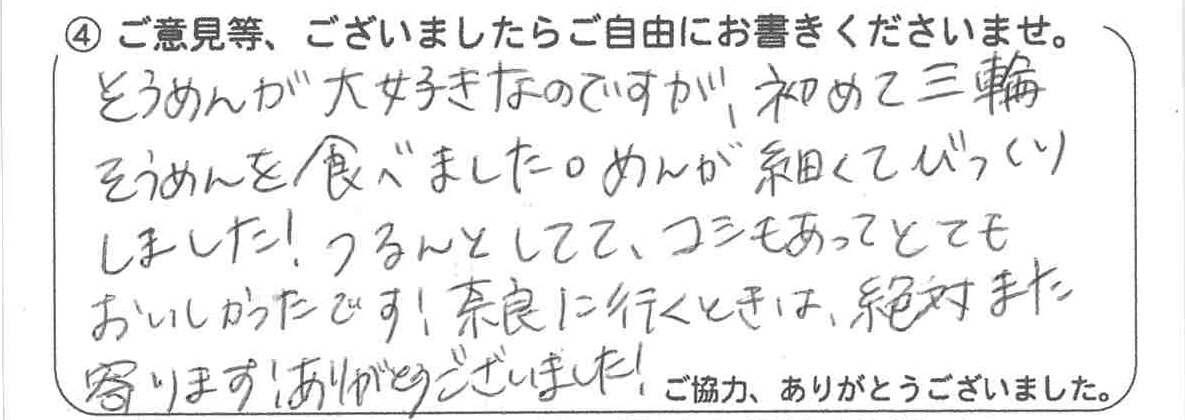 ④ ご意見等、ございましたらご自由にお書きくださいませ。
そうめんが大好きなのですが、初めて三輪
そうめんを食べました。めんが細くてびっくり
しました!つるんとしてて、コシもあってとても
おいしかったです!奈良に行くときは、絶対また
寄ります!ありがとうございました!
ご協力、ありがとうございました。